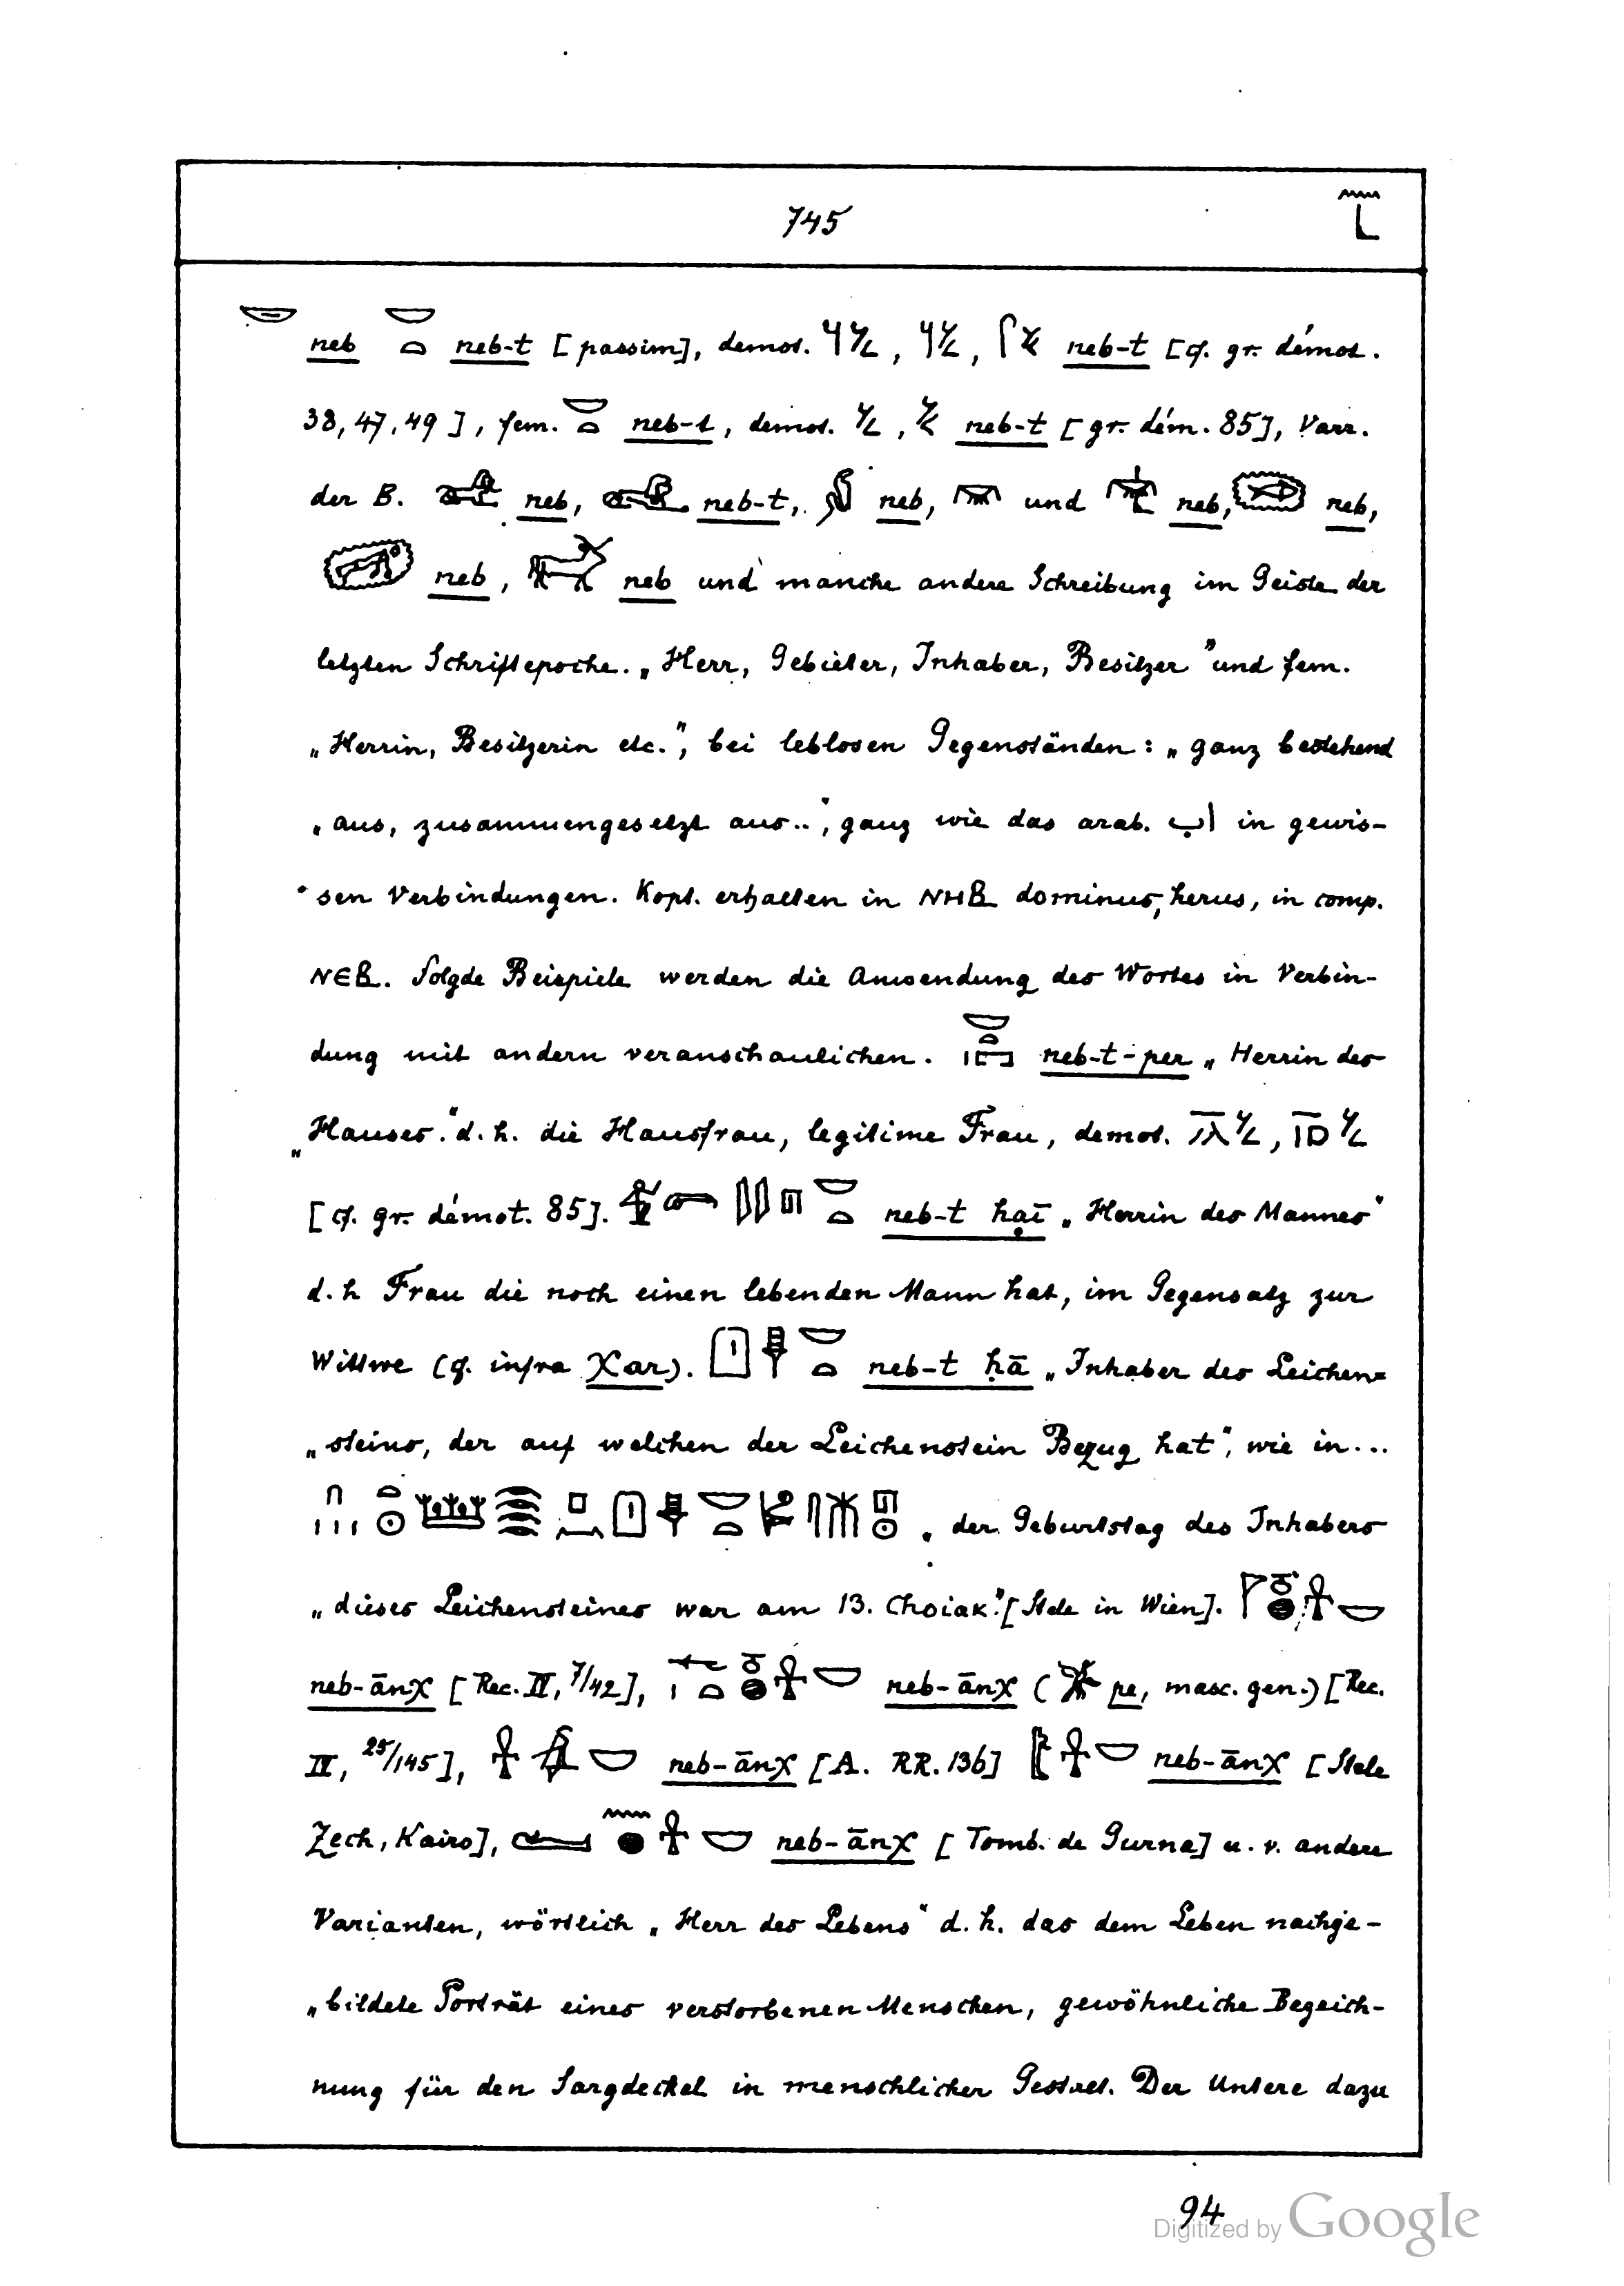 745
neb neb-t [passim], demot. neb-t [cf. gr. démot.
38, 47, 49], fem. neb-t, demot. neb-t [gr. dém. 85], Varr.
der B. neb, neb-t, neb, und neb, neb,
neb, neb und manche andere Schreibung im Geiste der
letzten Schriftepoche. „Herr, Gebieter, Inhaber, Besitzer" und fem.
„Herrin, Besitzerin etc.", bei leblosen Gegenständen: „ganz bestehend
„aus, zusammengesetzt aus..", ganz wie das arab. اب in gewis-
sen Verbindungen. Kopt. erhalten in ⲚⲎⲂ dominus, herus, in comp.
ⲚⲈⲂ. Folgde Beispiele werden die Anwendung des Wortes in Verbin-
dung mit andern veranschaulichen. neb-t-per „Herrin des
„Hauses." d. h. die Hausfrau, legitime Frau, demot.
[cf. gr. démot. 85]. neb-t ḥai „Herrin des Mannes"
d. h Frau die noch einen lebenden Mann hat, im Gegensatz zur
Wittwe (cf. infra χar). neb-t ḥā „Inhaber des Leichen=
„steins, der auf welchen der Leichenstein Bezug hat", wie in...
„der Geburtstag des Inhabers
„dieses Leichensteines war am 13. Choiak." [Stele in Wien].
neb-ānχ [Rec. II, 7/42], neb-ānχ (pe, masc. gen.) [Rec.
IV, 25/145], neb-ānχ [A. RR. 136] neb-ānχ [Stele
Zech, Kairo], neb-ānχ [Tomb. de Gurna] u. v. andere
Varianten, wörtlich „Herr des Lebens" d. h. das dem Leben nachge-
„bildete Porträt eines verstorbenen Menschen, gewöhnliche Bezeich-
nung für den Sargdeckel in menschlicher Gestalt. Der Untere dazu
94
Digitized by Google